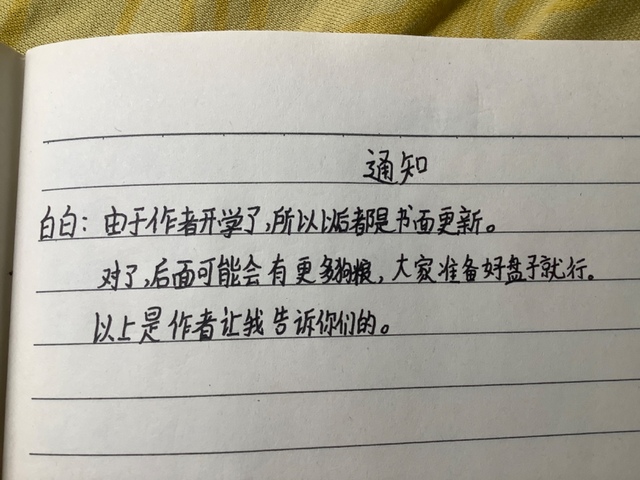 通知
白白：由于作者开学了，所以以后都是书面更新。
对了，后面可能会有更多狗粮，大家准备好盘子就行。
以上是作者让我告诉你们的。